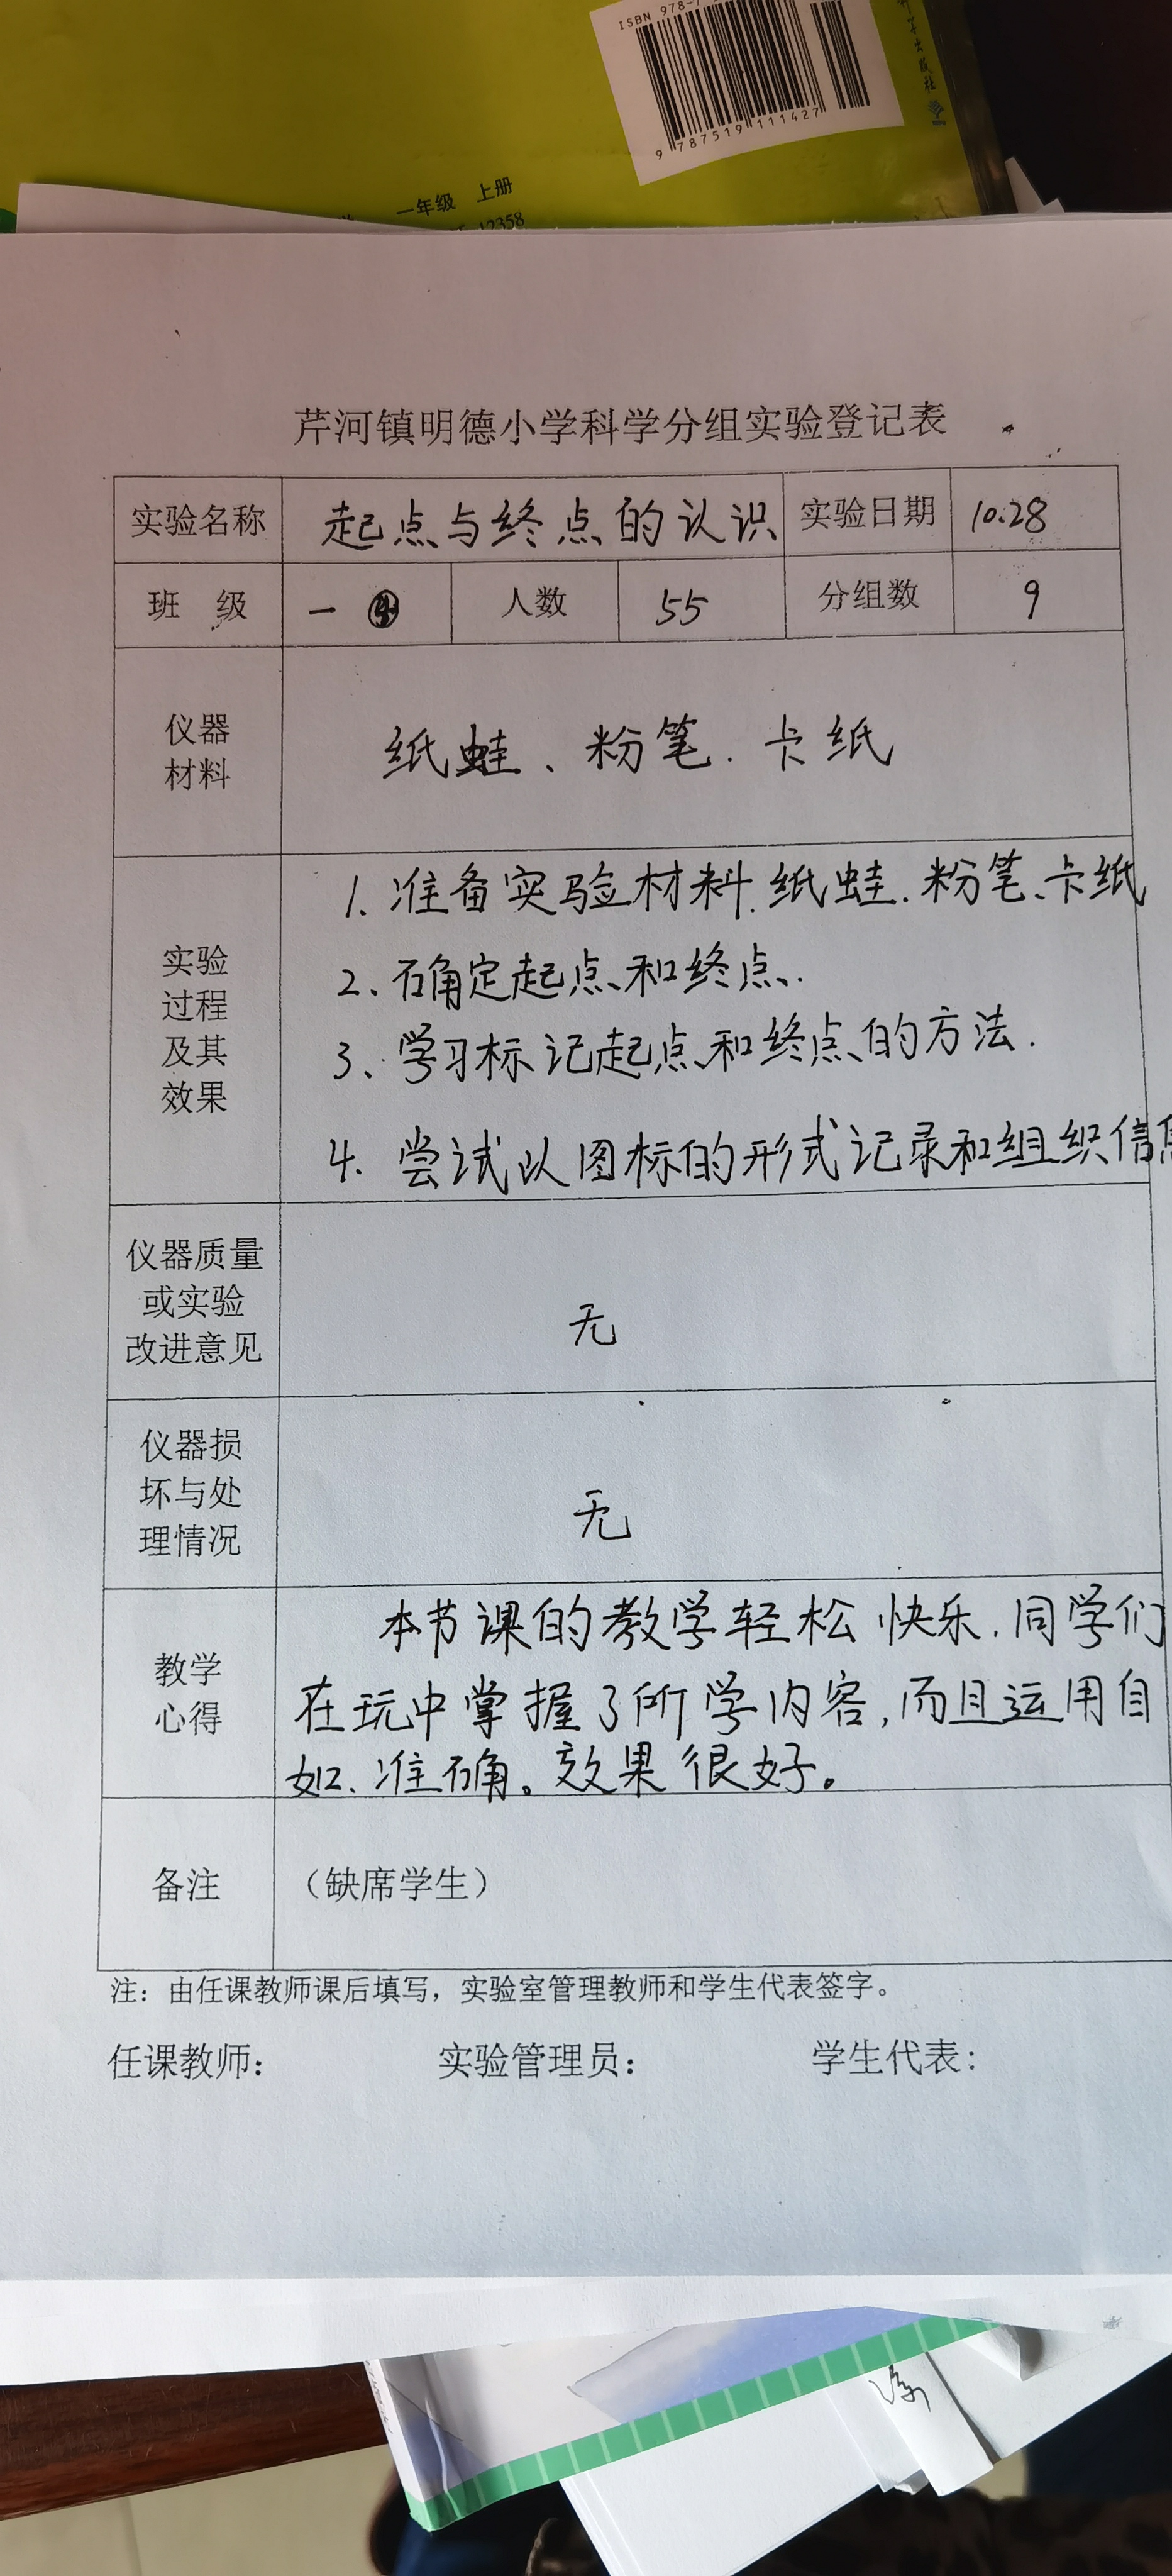 ISBN 978-7
9 787519 111427
一年级 上册
12358
芹河镇明德小学科学分组实验登记表
实验名称 起点与终点的认识 实验日期 10.28
班 级 一 ④ 人数 55 分组数 9
仪器
材料
纸蛙、粉笔.卡纸
实验
过程
及其
效果
1、准备实验材料.纸蛙.粉笔、卡纸
2、确定起点和终点.
3、学习标记起点和终点的方法.
4.尝试以图标的形式记录和组织信息
仪器质量
或实验
改进意见
无
仪器损
坏与处
理情况
无
教学
心得
本节课的教学轻松快乐.同学们
在玩中掌握了所学内容,而且运用自
如.准确。效果很好。
备注 （缺席学生）
注：由任课教师课后填写，实验室管理教师和学生代表签字。
任课教师： 实验管理员： 学生代表：